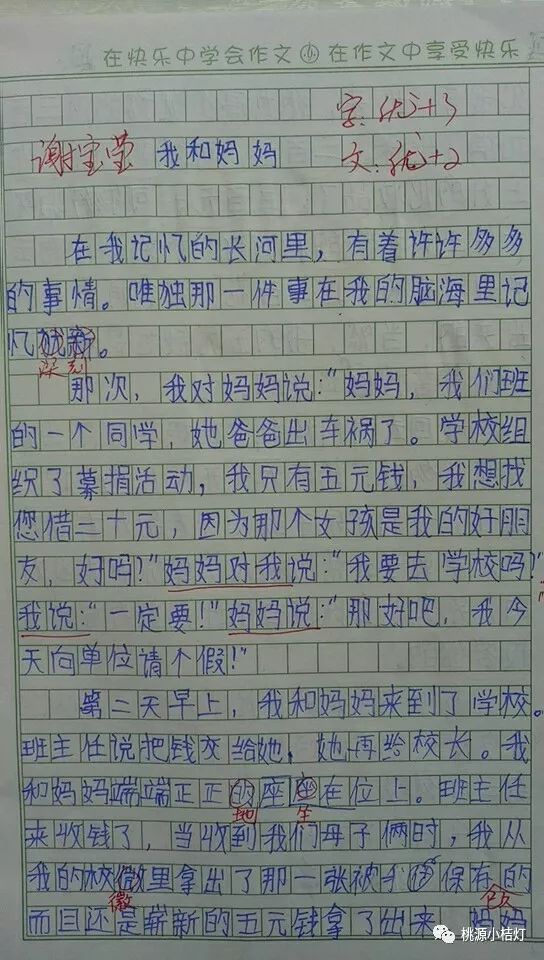 在快乐中学会作文 小 在作文中享受快乐
字:优+3
谢宝莹 我和妈妈 文:优+2
在我记忆的长河里，有着许许多多
的事情。唯独那一件事在我的脑海里记
忆犹新。
深刻
那次，我对妈妈说："妈妈，我们班
的一个同学，她爸爸出车祸了。学校组
织了募捐活动，我只有五元钱，我想找
您借二十元，因为那个女孩是我的好朋
友，好吗？"妈妈对我说："我要去学校吗？"
我说："一定要！"妈妈说："那好吧，我今
天向单位请个假！"
第二天早上，我和妈妈来到了学校。
班主任说把钱交给她，她再给校长。我
和妈妈端端正正的座座在位上。班主任
地 坐
来收钱了，当收到我们母子俩时，我从
我的校徽里拿出了那一张被我保存的
徽
而且还是崭新的五元钱拿了出来 妈妈
桃源小桔灯